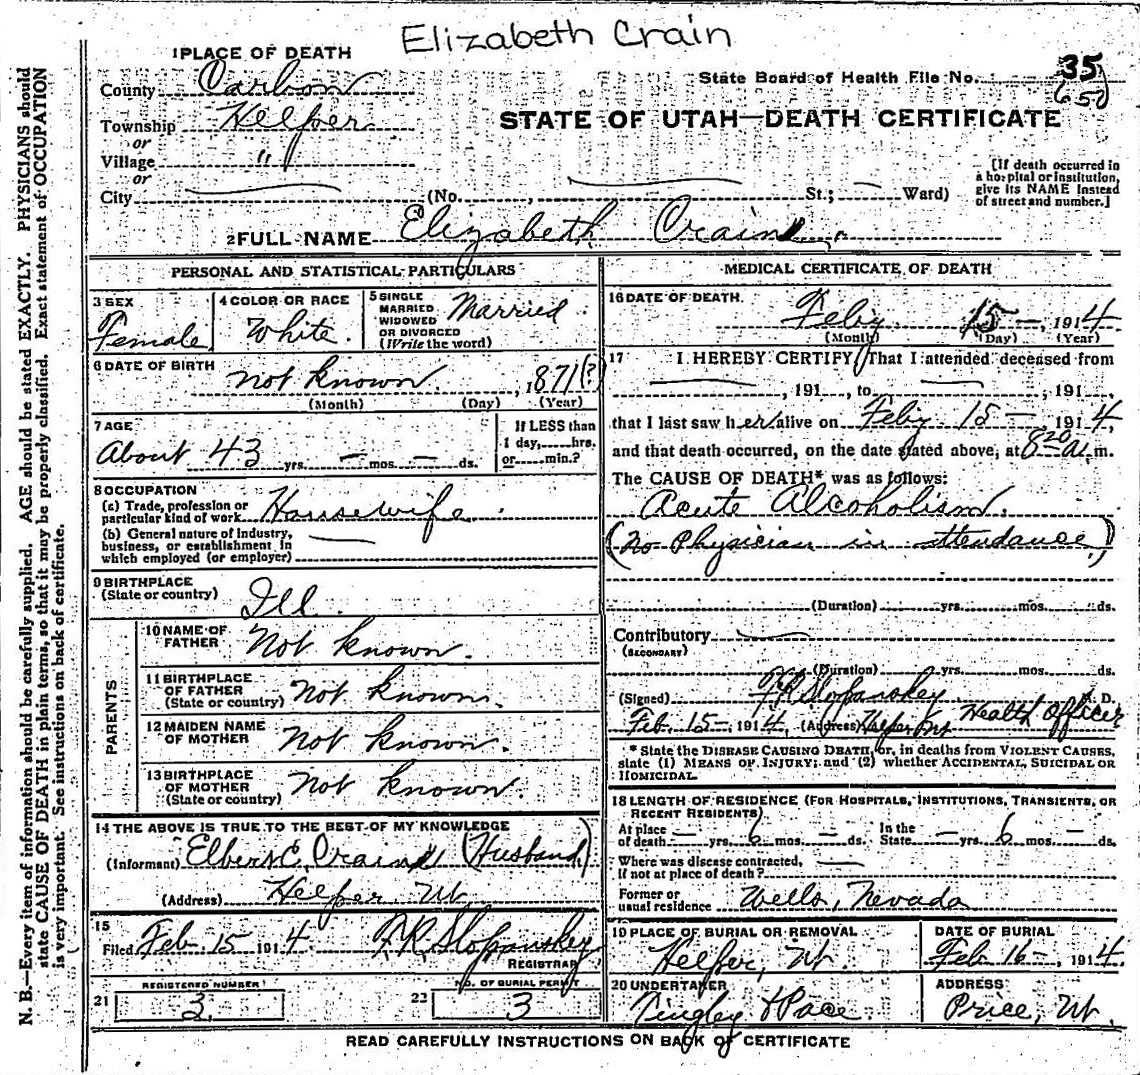 Elizabeth Crain
1 PLACE OF DEATH
County Carbon
Township Helper
or
Village "
or
City (No. St.; Ward)
State Board of Health File No. 35
650
STATE OF UTAH—DEATH CERTIFICATE
[If death occurred in
a hospital or institution,
give its NAME instead
of street and number.]
2 FULL NAME Elizabeth Crain
PERSONAL AND STATISTICAL PARTICULARS
3 SEX
Female
4 COLOR OR RACE
White.
5 SINGLE
MARRIED
WIDOWED
OR DIVORCED
(Write the word)
Married
6 DATE OF BIRTH
not known. , 1871(?)
(Month) (Day) (Year)
7 AGE
About 43 yrs. — mos. — ds.
If LESS than
1 day, hrs.
or min.?
8 OCCUPATION
(a) Trade, profession or
particular kind of work Housewife
(b) General nature of Industry,
business, or establishment in
which employed (or employer)
9 BIRTHPLACE
(State or country) Ill.
PARENTS
10 NAME OF
FATHER Not known.
11 BIRTHPLACE
OF FATHER
(State or country) Not known.
12 MAIDEN NAME
OF MOTHER Not known.
13 BIRTHPLACE
OF MOTHER
(State or country) Not known.
14 THE ABOVE IS TRUE TO THE BEST OF MY KNOWLEDGE
(Informant) Elbert E. Crain (Husband)
(Address) Helper Ut.
15
Filed Feb. 15 1914. F.R. Slopanskey
REGISTRAR
REGISTERED NUMBER
21 3.
NO. OF BURIAL PERMIT
22 3
MEDICAL CERTIFICATE OF DEATH
16 DATE OF DEATH
Feby 15 —, 1914
(Month) (Day) (Year)
17 I HEREBY CERTIFY, That I attended deceased from
, 191 , to , 191 ,
that I last saw her alive on Feby 15 — 1914,
and that death occurred, on the date stated above, at 8 20 A.m.
The CAUSE OF DEATH* was as follows:
Acute Alcoholism.
(No Physician in attendance.)
(Duration) yrs. mos. ds.
Contributory
(SECONDARY)
(Duration) yrs. mos. ds.
(Signed) F.R. Slopanskey M. D.
Feb. 15 — 1914, (Address) Helper Ut Health Officer
* State the DISEASE CAUSING DEATH, or, in deaths from VIOLENT CAUSES,
state (1) MEANS OF INJURY; and (2) whether ACCIDENTAL, SUICIDAL OR
HOMICIDAL.
18 LENGTH OF RESIDENCE (FOR HOSPITALS, INSTITUTIONS, TRANSIENTS, OR
RECENT RESIDENTS)
At place
of death — yrs. 6 mos. — ds. In the
State — yrs. 6 mos. — ds.
Where was disease contracted,
if not at place of death?
Former or
usual residence Wells, Nevada
19 PLACE OF BURIAL OR REMOVAL
Helper, Ut.
DATE OF BURIAL
Feb 16 —, 1914.
20 UNDERTAKER
Tingley & Pace
ADDRESS
Price, Ut.
READ CAREFULLY INSTRUCTIONS ON BACK OF CERTIFICATE
N. B.—Every item of information should be carefully supplied. AGE should be stated EXACTLY. PHYSICIANS should
state CAUSE OF DEATH in plain terms, so that it may be properly classified. Exact statement of OCCUPATION
is very important. See instructions on back of certificate.